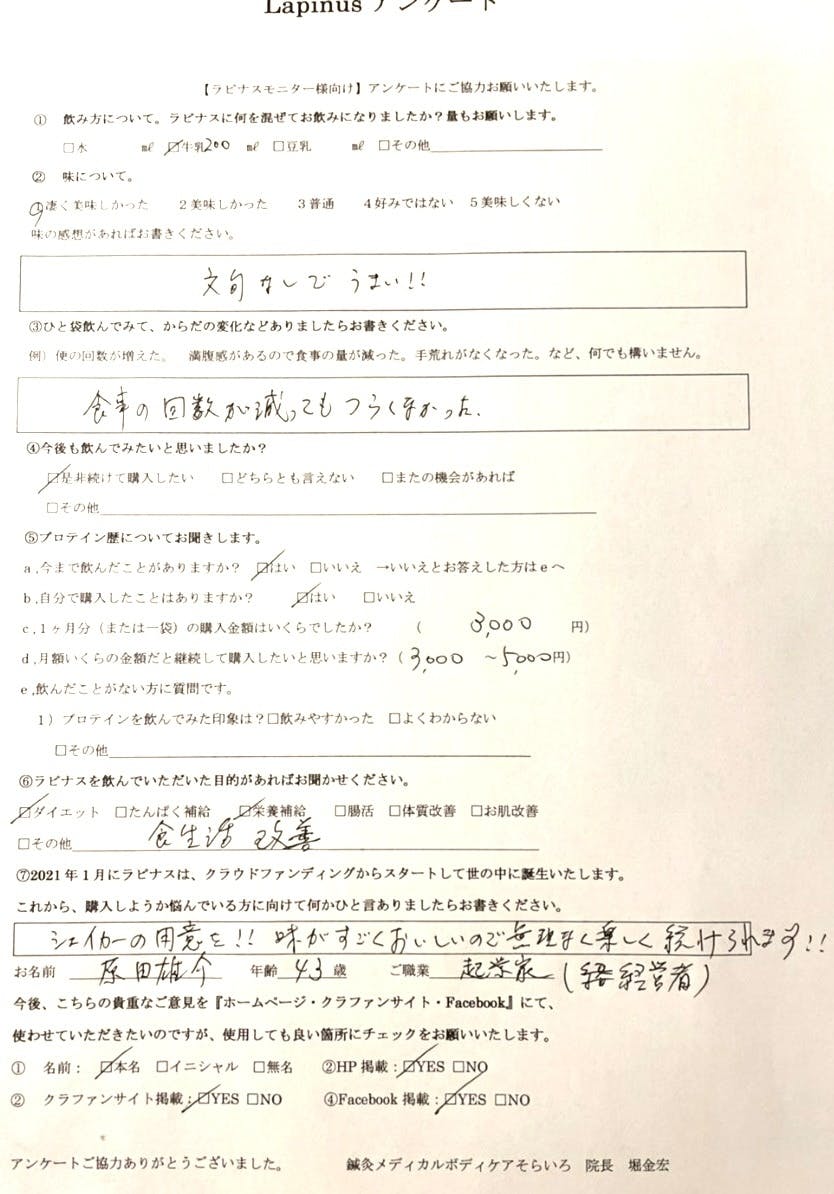 Lapinus アンケート
【ラピナスモニター様向け】アンケートにご協力お願いいたします。
① 飲み方について。ラピナスに何を混ぜてお飲みになりましたか？量もお願いします。
□水 ㎖ □牛乳200 ㎖ □豆乳 ㎖ □その他
② 味について。
1凄く美味しかった 2美味しかった 3普通 4好みではない 5美味しくない
味の感想があればお書きください。
文句なしで うまい!!
③ひと袋飲んでみて、からだの変化などありましたらお書きください。
例）便の回数が増えた。 満腹感があるので食事の量が減った。手荒れがなくなった。など、何でも構いません。
食事の回数が減ってもつらくなかった.
④今後も飲んでみたいと思いましたか？
□是非続けて購入したい □どちらとも言えない □またの機会があれば
□その他
⑤プロテイン歴についてお聞きします。
a,今まで飲んだことがありますか？ □はい □いいえ →いいえとお答えした方はeへ
b,自分で購入したことはありますか？ □はい □いいえ
c,1ヶ月分（または一袋）の購入金額はいくらでしたか？ （ 3,000 円）
d,月額いくらの金額だと継続して購入したいと思いますか？（3,000 〜5,000円）
e,飲んだことがない方に質問です。
1）プロテインを飲んでみた印象は？□飲みやすかった □よくわからない
□その他
⑥ラピナスを飲んでいただいた目的があればお聞かせください。
□ダイエット □たんぱく補給 □栄養補給 □腸活 □体質改善 □お肌改善
□その他 食生活 改善
⑦2021年1月にラピナスは、クラウドファンディングからスタートして世の中に誕生いたします。
これから、購入しようか悩んでいる方に向けて何かひと言ありましたらお書きください。
シェイカーの用意を!! 味がすごくおいしいので無理なく楽しく続けられます!!
お名前 原田雄介 年齢 43 歳 ご職業 起業家（経営者）
今後、こちらの貴重なご意見を『ホームページ・クラファンサイト・Facebook』にて、
使わせていただきたいのですが、使用しても良い箇所にチェックをお願いいたします。
① 名前：□本名 □イニシャル □無名 ②HP掲載：□YES □NO
② クラファンサイト掲載：□YES □NO ④Facebook掲載：□YES □NO
アンケートご協力ありがとうございました。 鍼灸メディカルボディケアそらいろ 院長 堀金宏